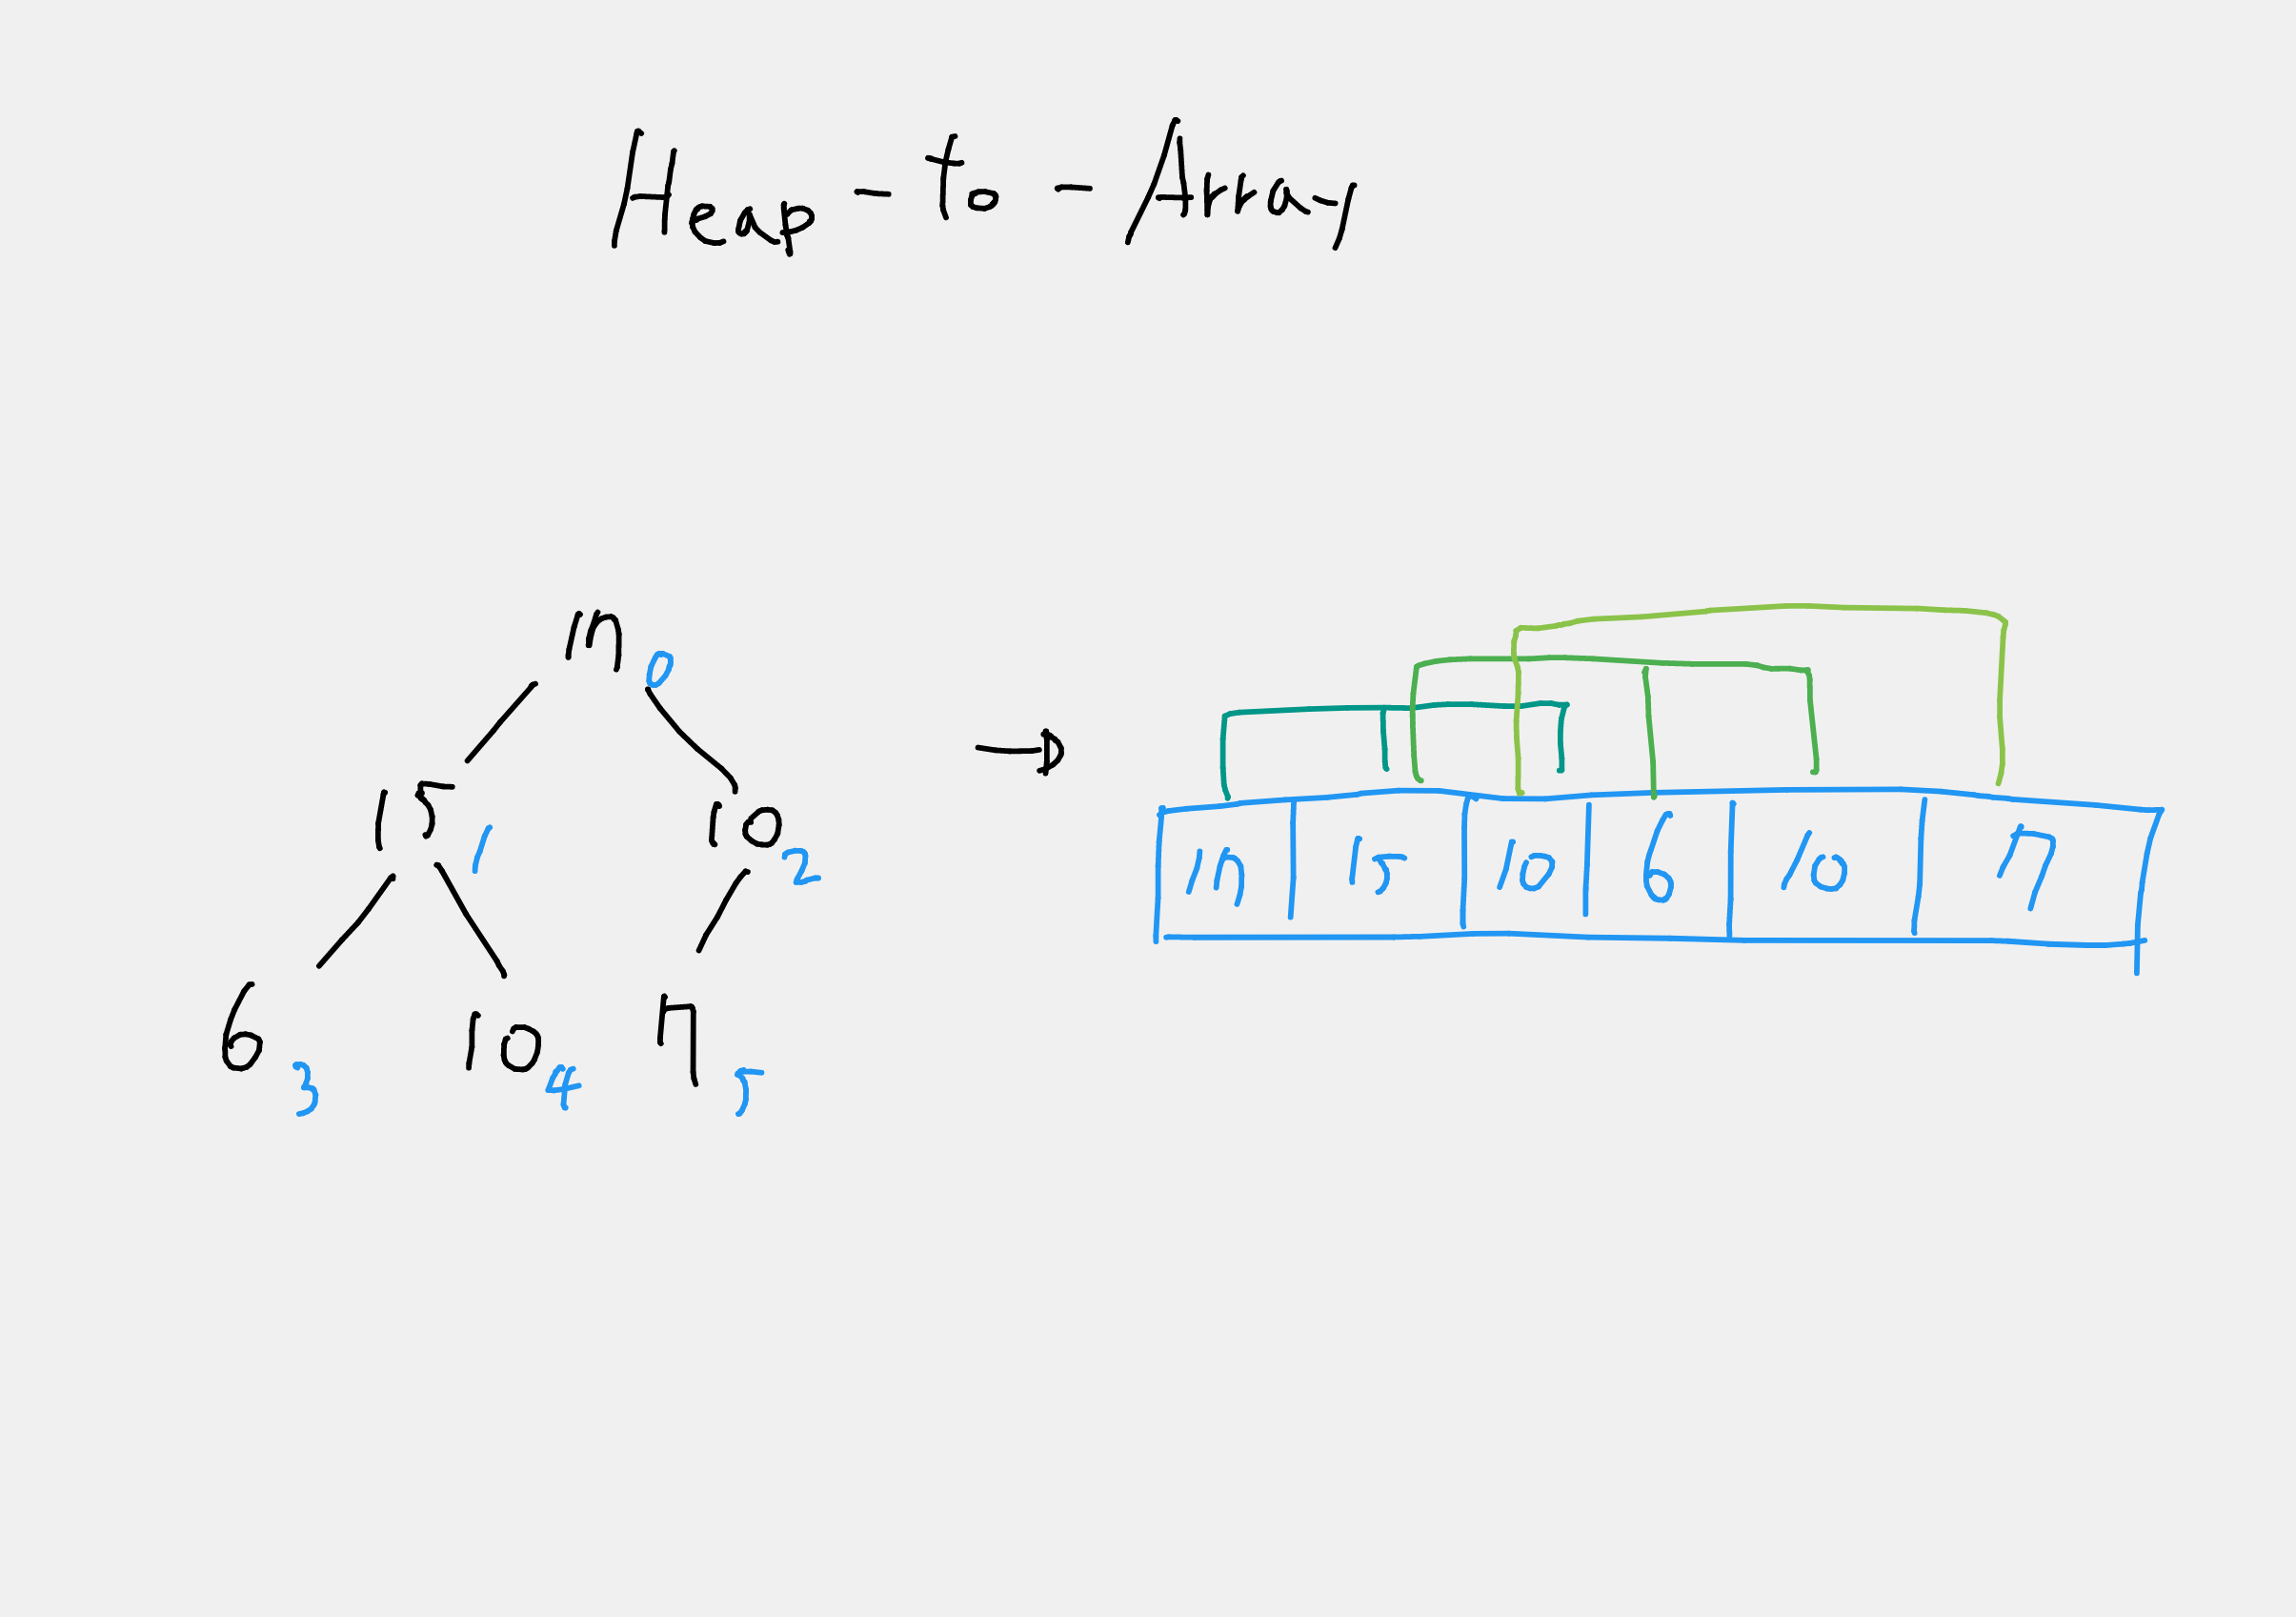 Heap-to-Array
17 0
15 1 10 2
6 3 10 4 7 5
17 15 10 6 10 7